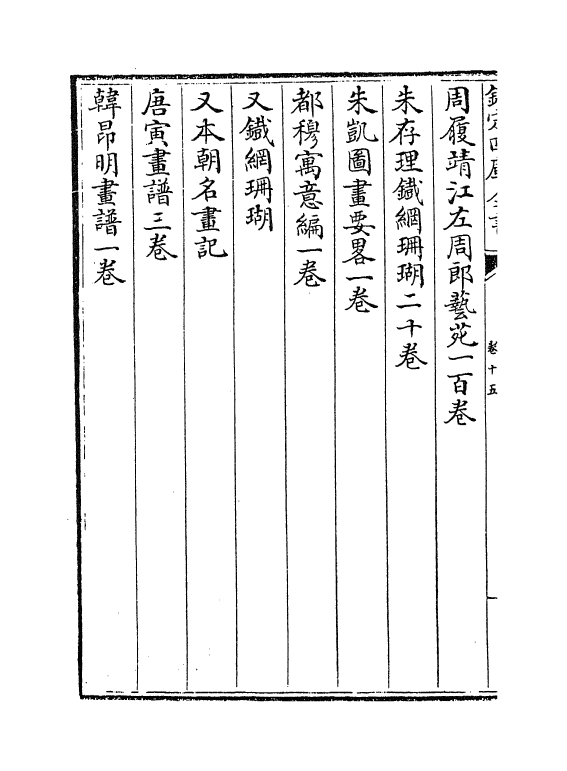 欽定四庫全書
卷十五
周履靖江左周郎藝苑一百卷
朱存理鐵網珊瑚二十卷
朱凱圖畫要畧一卷
都穆寓意編一卷
又鐵網珊瑚
又本朝名畫記
唐寅畫譜三卷
韓昂明畫譜一卷